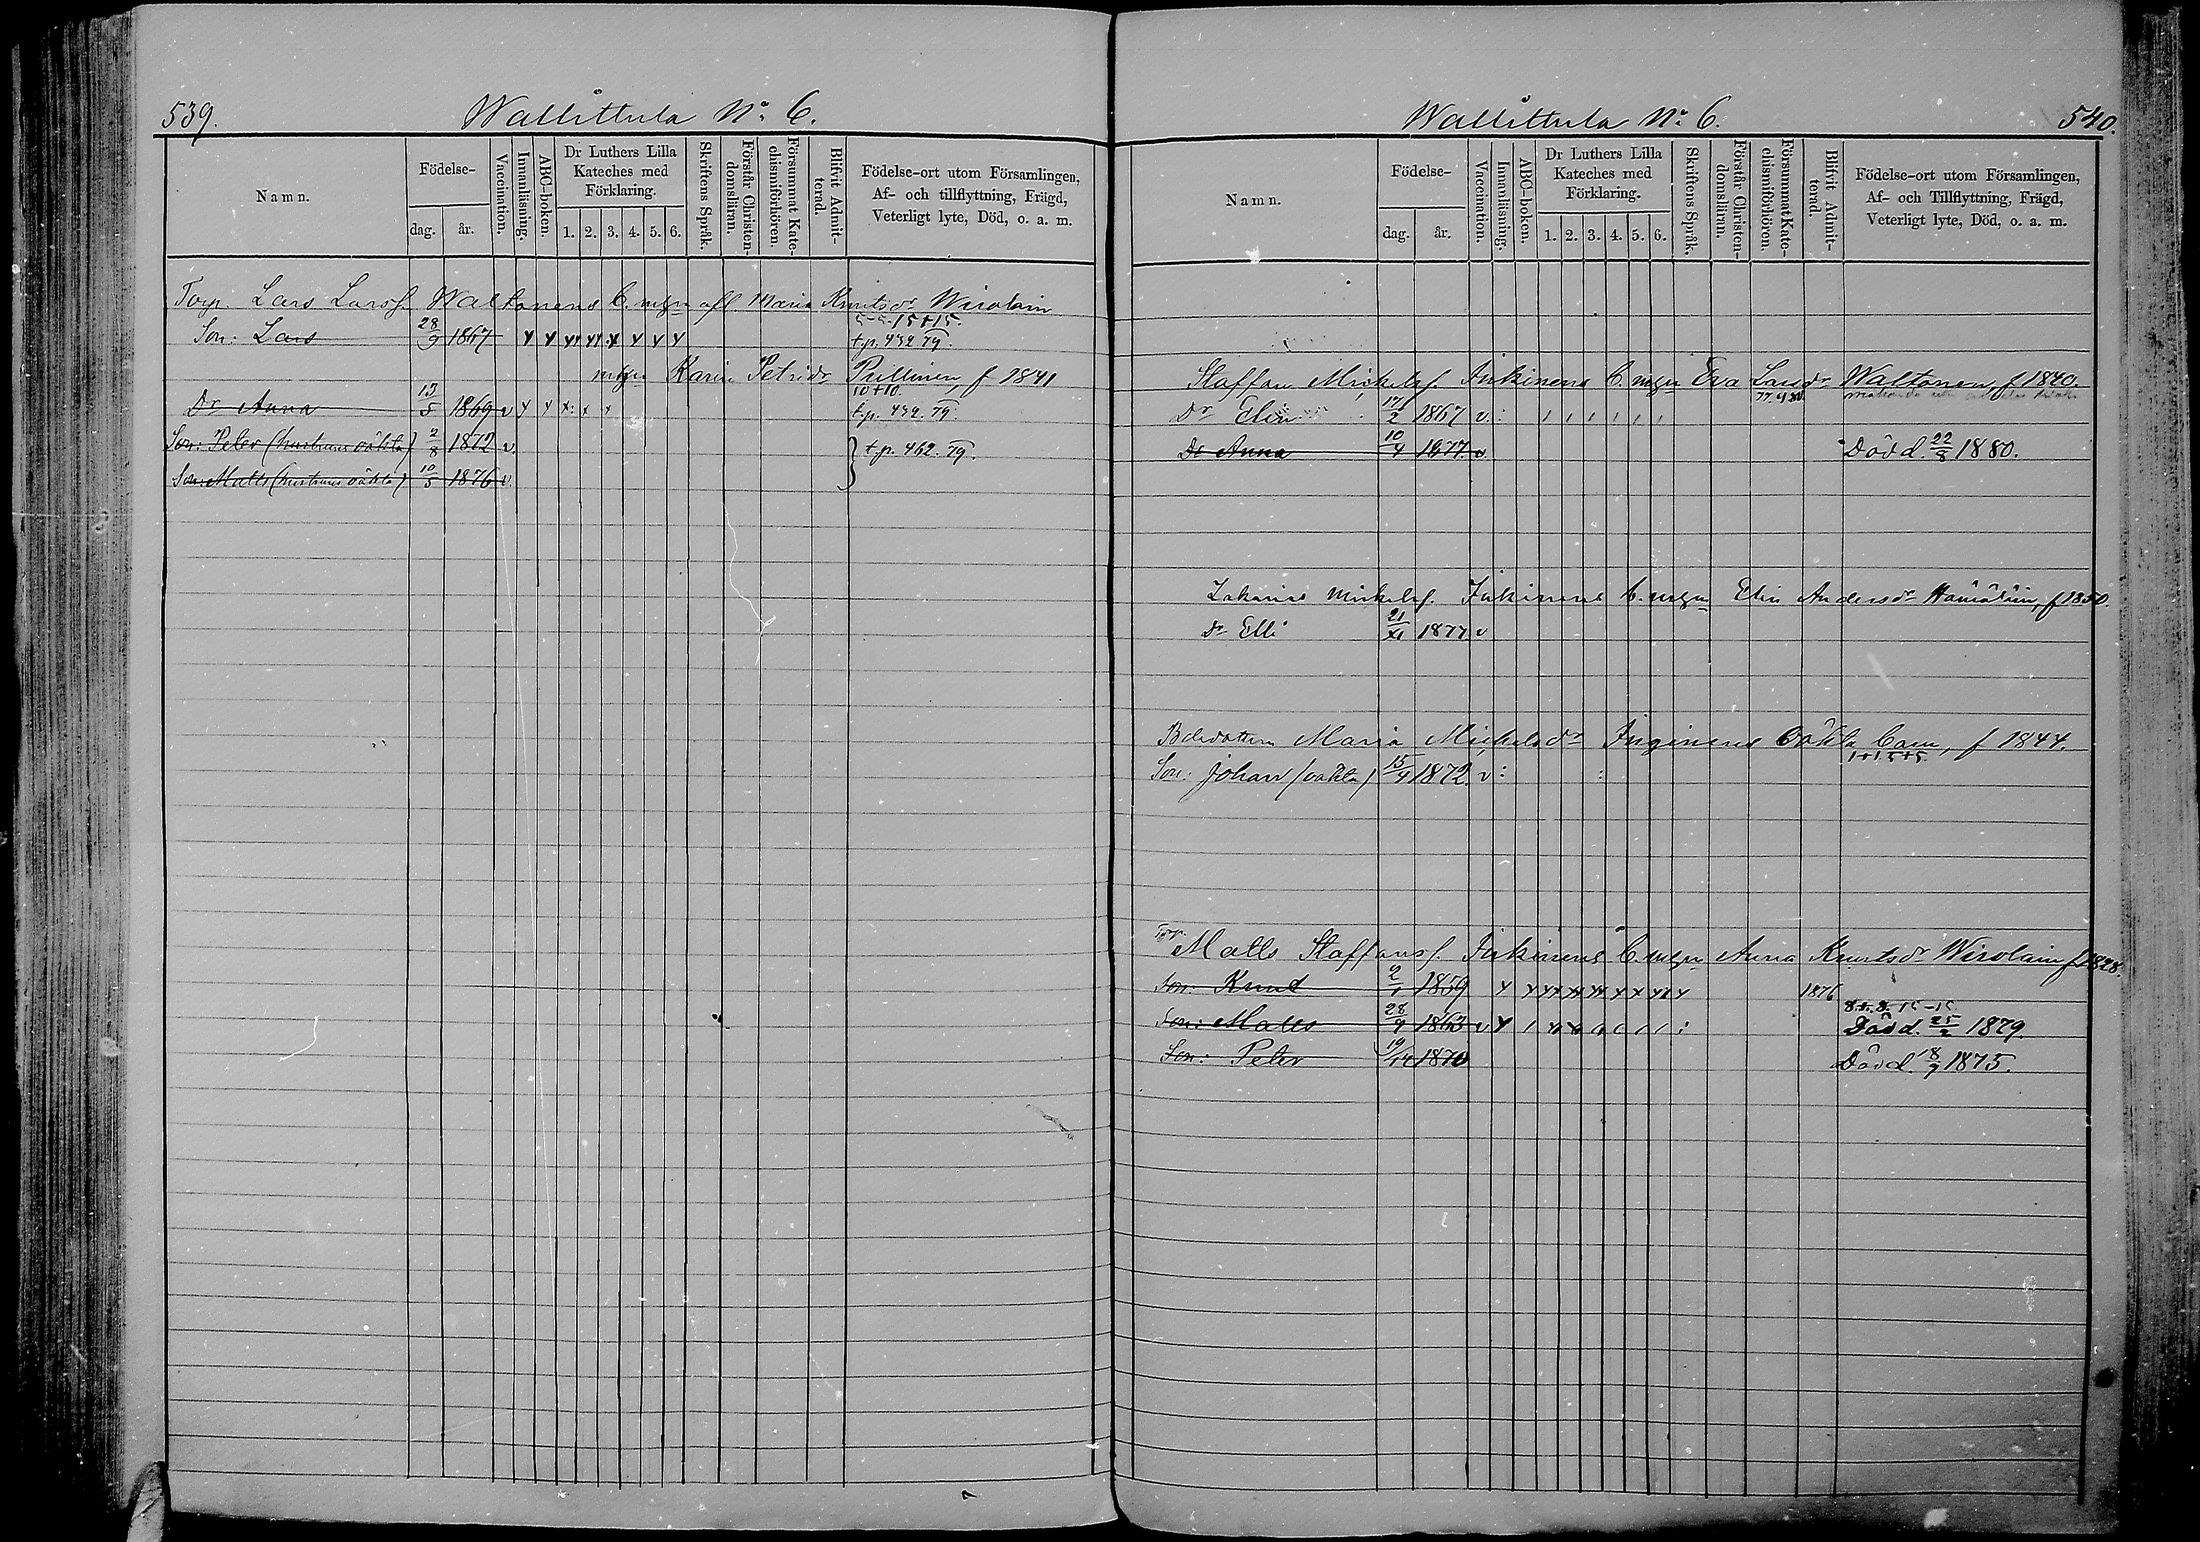 539.
Wallittula No 6.
Namn.
Födelse-
dag. år.
Vaccination.
Innanläsning.
ABC-boken.
Dr Luthers Lilla
Kateches med
Förklaring.
1. 2. 3. 4. 5. 6.
Skriftens Språk.
Förstår Christen-
domsläran.
Försummat Kate-
chismiförhören.
Blifvit Admit-
terad.
Födelse-ort utom Församlingen,
Af- och tillflyttning, Frägd,
Veterligt lyte, Död, o. a. m.
Torp. Lars Larsf. Waltonens b. mgn afl. Maria Knutsdr Wirolain
15+15.
Son: Lars 28/9 1867 t.p. 432 79.
mgn Karin Petridr Pullinen, f 1841
10+10.
Dr Anna 13/5 1869 v t.p. 432 79.
Son: Peter (hustruns oäkta) 2/8 1872 v } t.p. 462. 79.
Son: Matts (hustruns oäkta) 10/5 1876 v.
Wallittula No 6.
540.
Namn.
Födelse-
dag. år.
Vaccination.
Innanläsning.
ABC-boken.
Dr Luthers Lilla
Kateches med
Förklaring.
1. 2. 3. 4. 5. 6.
Skriftens Språk.
Förstår Christen-
domsläran.
Försummat Kate-
chismiförhören.
Blifvit Admit-
terad.
Födelse-ort utom Församlingen,
Af- och Tillflyttning, Frägd,
Veterligt lyte, Död, o. a. m.
Staffan Mickelsf. Inkinens b. mgn Eva Larsdr Waltonen, f 1840.
Dr Elin 17/2 1867 v.
Dr Anna 10/4 1877 v. Död d. 22/8 1880.
Zakarias Mickelsf. Inkinens b. mgn Elin Andersdr Hämäläin, f 1850.
Dr Elli 21/XI 1877 v
Maria Mickelsdr Inginens oäkta barn, f 1844.
1+1 5+5.
Son: Johan (oäkta) 15/4 1872. v
Torp. Matts Staffansf. Inkinens b. mgn Anna Knutsdr Wirolain f 1828.
Son: Knut 2/1 1859 1876
8+8. 15-15
Son: Matts 28/4 1863 v Död d. 25/2 1879.
Son: Peter 1870 Död d. 8/9 1875.